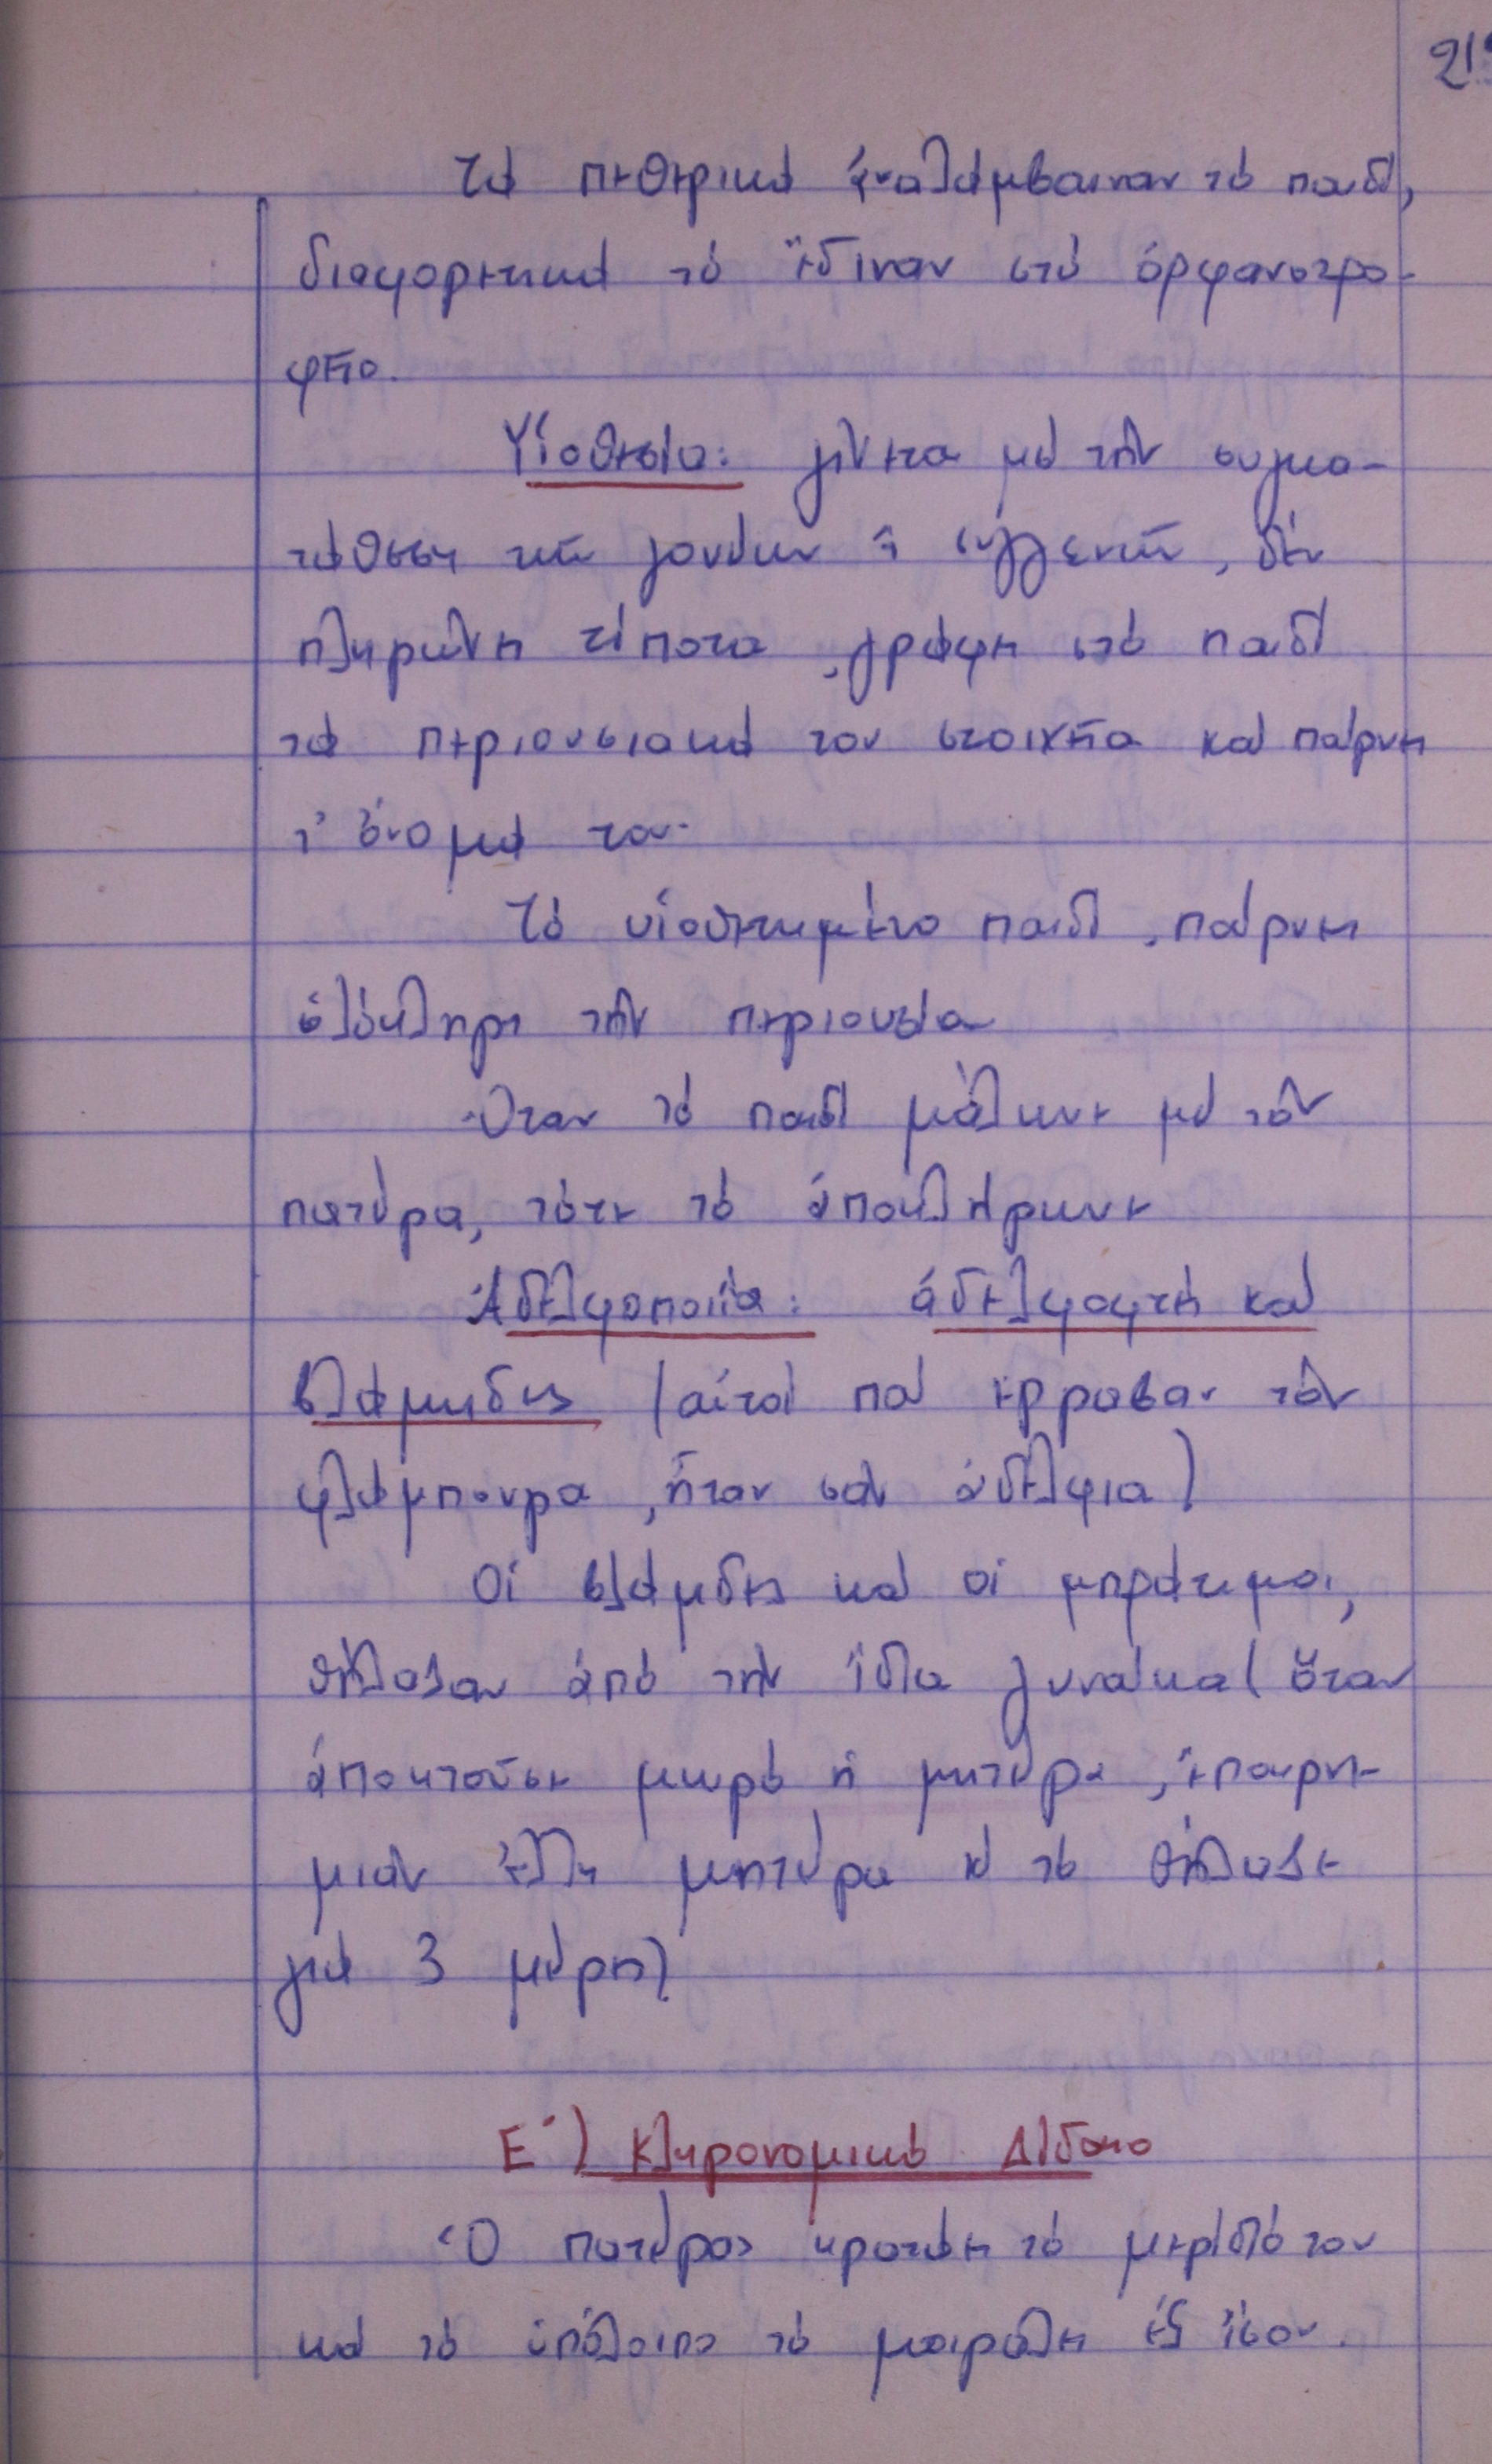 21
Τά πεθερικά ἀναλάμβαιναν τό παιδί,
διαφορετικά τό ἔδιναν στό ὀρφανοτρο-
φεῖο.
Υἱοθεσία: γίνεται μέ τήν συγκα-
τάθεση τῶν γονέων ἤ συγγενῶν, δέν
πληρώνει τίποτα, γράφει στό παιδί
τά περιουσιακά του στοιχεῖα καί παίρνει
τ' ὄνομά του.
Τό υἱοθετημένο παιδί, παίρνει
ὁλόκληρη τήν περιουσία
Ὅταν τό παιδί μάλωνε μέ τόν
πατέρα, τότε τό ἀποκλήρωνε
Ἀδελφοποιία: ἀδελφοφτή καί
βλάμηδες (αὐτοί πού ἔρραβαν τόν
φλάμπουρα, ἦταν σάν ἀδέλφια)
Οἱ βλάμδες καί οἱ μπράτιμοι,
θήλαζαν ἀπό τήν ἴδια γυναίκα (ὅταν
ἀποκτοῦσε μωρό ἡ μητέρα, ἔπαιρνε
μιάν ἄλλη μητέρα κ' τό θήλαζε
γιά 3 μέρες)
Ε') Κληρονομικό Δίκαιο
Ὁ πατέρας κρατάει τό μερίδιό του
καί τό ὑπόλοιπο τό μοιράζει ἐξ ἴσου.